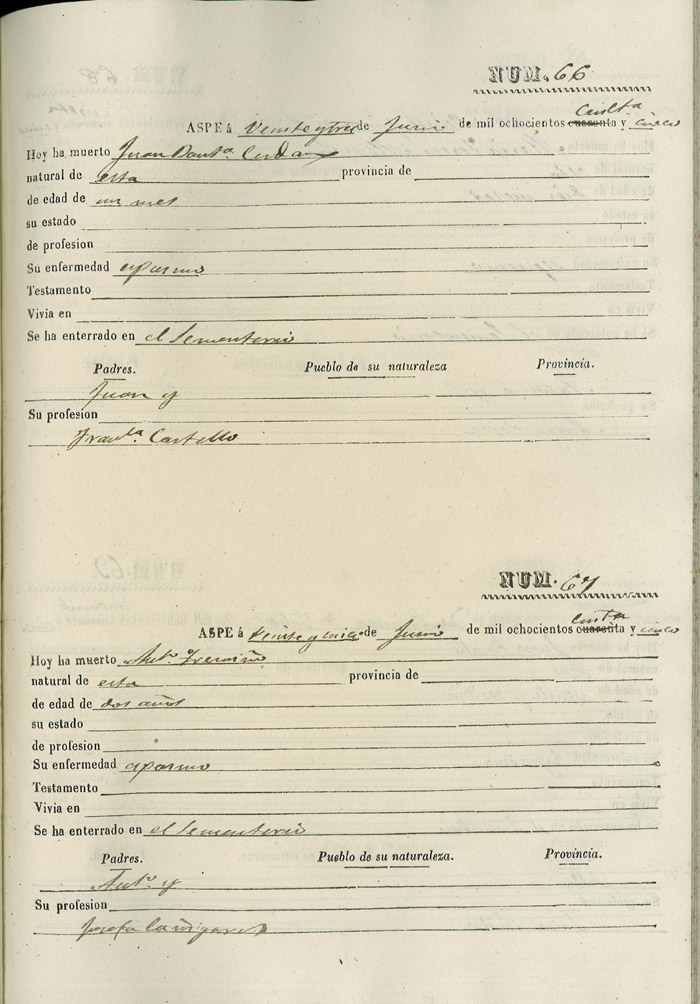 NUM. 66
ASPE á Veinte y tres de Junio de mil ochocientos cuarenta y cinco
Hoy ha muerto Juan Baut.ª Cerdan
natural de esta provincia de
de edad de un mes
su estado
de profesion
Su enfermedad espasmo
Testamento
Vivia en
Se ha enterrado en el Sementerio
Padres. Pueblo de su naturaleza Provincia.
Juan y
Su profesion
Fran.ca Castello
NUM. 67
ASPE á Veinte y cinco de Junio de mil ochocientos cuarenta y cinco
Hoy ha muerto Ant.º
natural de esta provincia de
de edad de dos años
su estado
de profesion
Su enfermedad espasmo
Testamento
Vivia en
Se ha enterrado en el Sementerio
Padres. Pueblo de su naturaleza. Provincia.
Ant.º y
Su profesion
Josefa Cañizares